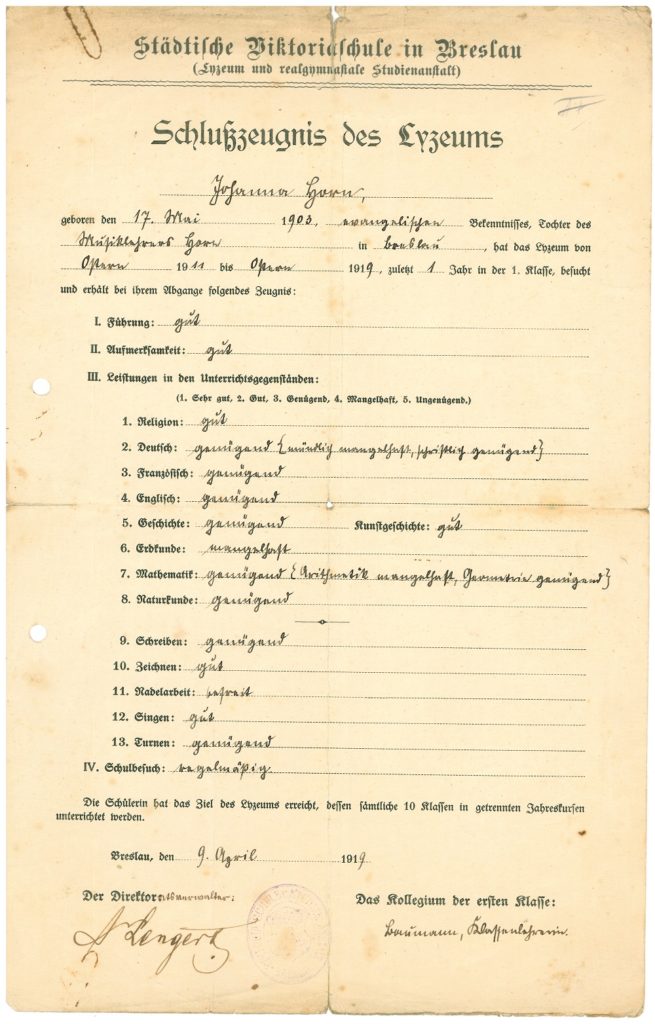 Städtische Viktoriaschule in Breslau
(Lyzeum und realgymnasiale Studienanstalt)
II
Schlußzeugnis des Lyzeums
Johanna Horn,
geboren den 17. Mai 1903, evangelischen Bekenntnisses, Tochter des
Musiklehrers Horn in Breslau, hat das Lyzeum von
Ostern 1911 bis Ostern 1919, zuletzt 1 Jahr in der 1. Klasse, besucht
und erhält bei ihrem Abgange folgendes Zeugnis:
I. Führung: gut
II. Aufmerksamkeit: gut
III. Leistungen in den Unterrichtsgegenständen:
(1. Sehr gut, 2. Gut, 3. Genügend, 4. Mangelhaft, 5. Ungenügend.)
1. Religion: gut
2. Deutsch: genügend {mündlich mangelhaft, schriftlich genügend}
3. Französisch: genügend
4. Englisch: genügend
5. Geschichte: genügend Kunstgeschichte: gut
6. Erdkunde: mangelhaft
7. Mathematik: genügend {Arithmetik mangelhaft, Geometrie genügend}
8. Naturkunde: genügend
9. Schreiben: genügend
10. Zeichnen: gut
11. Nadelarbeit: befreit
12. Singen: gut
13. Turnen: genügend
IV. Schulbesuch: regelmäßig.
Die Schülerin hat das Ziel des Lyzeums erreicht, dessen sämtliche 10 Klassen in getrennten Jahreskursen
unterrichtet werden.
Breslau, den 9. April 1919
Der Direktoratsverwalter:
Das Kollegium der ersten Klasse:
Lengert
Baumann, Klassenlehrerin.